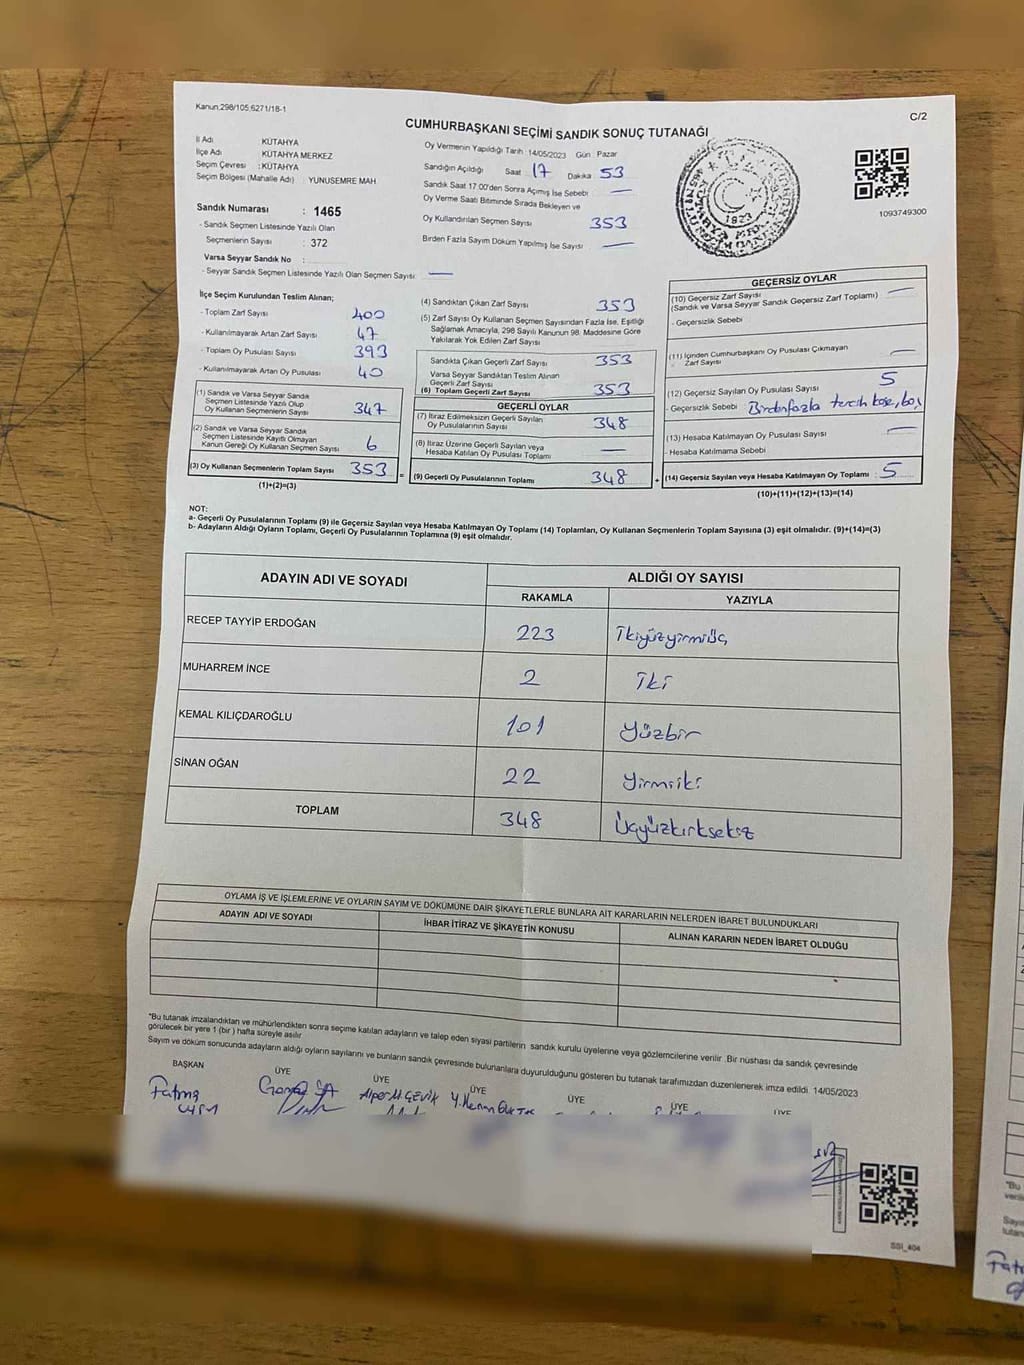 Kanun.298/105,6271/18-1
C/2
CUMHURBAŞKANI SEÇİMİ SANDIK SONUÇ TUTANAĞI
İl Adı : KÜTAHYA
İlçe Adı : KÜTAHYA MERKEZ
Seçim Çevresi : KÜTAHYA
Seçim Bölgesi (Mahalle Adı) : YUNUSEMRE MAH
Sandık Numarası : 1465
- Sandık Seçmen Listesinde Yazılı Olan
Seçmenlerin Sayısı : 372
Varsa Seyyar Sandık No :
- Seyyar Sandık Seçmen Listesinde Yazılı Olan Seçmen Sayısı: —
Oy Vermenin Yapıldığı Tarih : 14/05/2023 Gün : Pazar
Sandığın Açıldığı Saat 17 Dakika 53
Sandık Saat 17:00'den Sonra Açmış İse Sebebi —
Oy Verme Saati Bitiminde Sırada Bekleyen ve
Oy Kullandırılan Seçmen Sayısı 353
Birden Fazla Sayım Döküm Yapılmış İse Sayısı —
1923
1093749300
İlçe Seçim Kurulundan Teslim Alınan;
- Toplam Zarf Sayısı 400
- Kullanılmayarak Artan Zarf Sayısı 47
- Toplam Oy Pusulası Sayısı 393
- Kullanılmayarak Artan Oy Pusulası 40
(1) Sandık ve Varsa Seyyar Sandık
Seçmen Listesinde Yazılı Olup
Oy Kullanan Seçmenlerin Sayısı 347
(2) Sandık ve Varsa Seyyar Sandık
Seçmen Listesinde Kayıtlı Olmayan
Kanun Gereği Oy Kullanan Seçmen Sayısı 6
(3) Oy Kullanan Seçmenlerin Toplam Sayısı 353 =
(1)+(2)=(3)
(4) Sandıktan Çıkan Zarf Sayısı 353
(5) Zarf Sayısı Oy Kullanan Seçmen Sayısından Fazla İse, Eşitliği
Sağlamak Amacıyla, 298 Sayılı Kanunun 98. Maddesine Göre
Yakılarak Yok Edilen Zarf Sayısı
Sandıkta Çıkan Geçerli Zarf Sayısı 353
Varsa Seyyar Sandıktan Teslim Alınan
Geçerli Zarf Sayısı
(6) Toplam Geçerli Zarf Sayısı 353
GEÇERLİ OYLAR
(7) İtiraz Edilmeksizin Geçerli Sayılan
Oy Pusulalarının Sayısı 348
(8) İtiraz Üzerine Geçerli Sayılan veya
Hesaba Katılan Oy Pusulası Toplamı —
(9) Geçerli Oy Pusulalarının Toplamı 348 +
GEÇERSİZ OYLAR
(10) Geçersiz Zarf Sayısı —
(Sandık ve Varsa Seyyar Sandık Geçersiz Zarf Toplamı)
- Geçersizlik Sebebi
(11) İçinden Cumhurbaşkanı Oy Pusulası Çıkmayan
Zarf Sayısı —
(12) Geçersiz Sayılan Oy Pusulası Sayısı 5
- Geçersizlik Sebebi Birdenfazla tercih kaşe, boş
(13) Hesaba Katılmayan Oy Pusulası Sayısı —
- Hesaba Katılmama Sebebi
(14) Geçersiz Sayılan veya Hesaba Katılmayan Oy Toplamı : 5
(10)+(11)+(12)+(13)=(14)
NOT:
a- Geçerli Oy Pusulalarının Toplamı (9) ile Geçersiz Sayılan veya Hesaba Katılmayan Oy Toplamı (14) Toplamları, Oy Kullanan Seçmenlerin Toplam Sayısına (3) eşit olmalıdır. (9)+(14)=(3)
b- Adayların Aldığı Oyların Toplamı, Geçerli Oy Pusulalarının Toplamına (9) eşit olmalıdır.
ADAYIN ADI VE SOYADI
ALDIĞI OY SAYISI
RAKAMLA YAZIYLA
RECEP TAYYİP ERDOĞAN 223 İkiyüzyirmiüç
MUHARREM İNCE 2 İki
KEMAL KILIÇDAROĞLU 101 Yüzbir
SİNAN OĞAN 22 Yirmiiki
TOPLAM 348 Üçyüzkırksekiz
OYLAMA İŞ VE İŞLEMLERİNE VE OYLARIN SAYIM VE DÖKÜMÜNE DAİR ŞİKAYETLERLE BUNLARA AİT KARARLARIN NELERDEN İBARET BULUNDUKLARI
ADAYIN ADI VE SOYADI
İHBAR İTİRAZ VE ŞİKAYETİN KONUSU
ALINAN KARARIN NEDEN İBARET OLDUĞU
"Bu tutanak imzalandıktan ve mühürlendikten sonra seçime katılan adayların ve talep eden siyasi partilerin sandık kurulu üyelerine veya gözlemcilerine verilir. Bir nüshası da sandık çevresinde
görülecek bir yere 1 (bir) hafta süreyle asılır
Sayım ve döküm sonucunda adayların aldığı oyların sayılarını ve bunların sandık çevresinde bulunanlara duyurulduğunu gösteren bu tutanak tarafımızdan düzenlenerek imza edildi. 14/05/2023
BAŞKAN ÜYE ÜYE ÜYE ÜYE ÜYE ÜYE
Fatma
SSİ_404